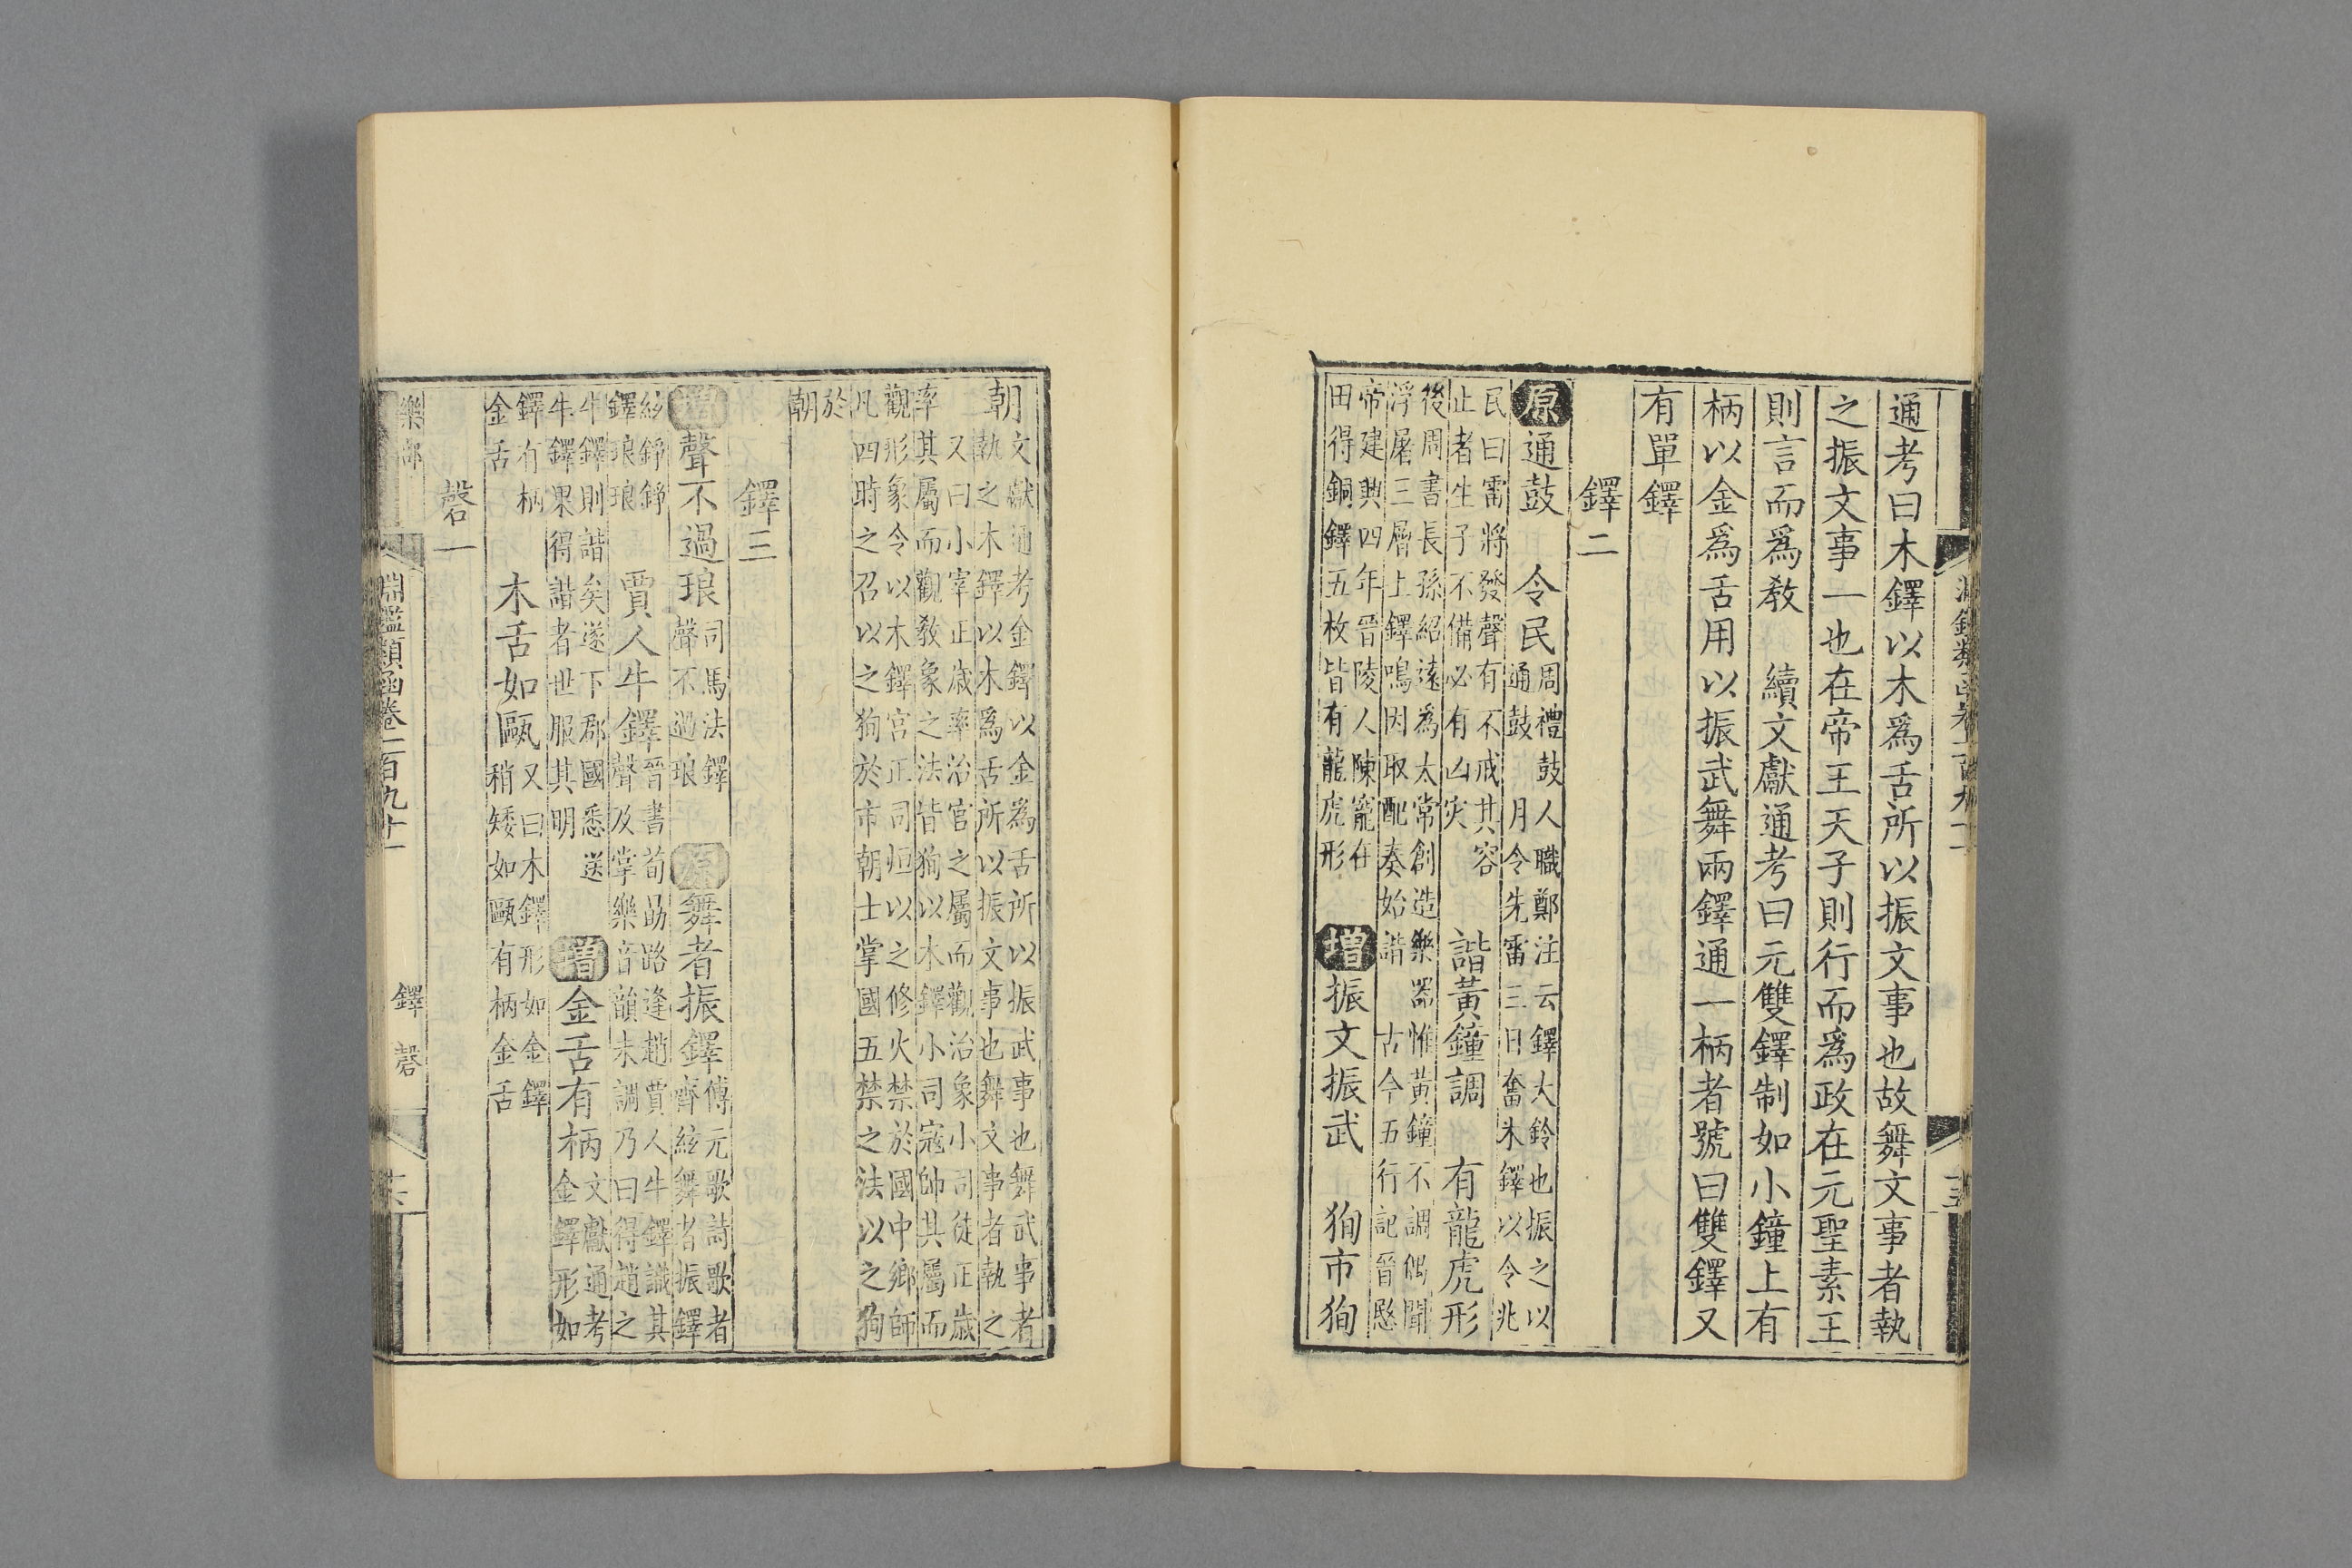 通考曰木鐸以木爲舌所以振文事也故舞文事者執
之振文事一也在帝王天子則行而爲政在元聖素王
則言而爲教 續文獻通考曰元雙鐸制如小鐘上有
柄以金爲舌用以振武舞兩鐸通一柄者號曰雙鐸又
有單鐸
鐸二
原通鼓 令民
周禮鼓人職鄭注云鐸大鈴也振之以
通鼓 月令先雷三日奮木鐸以令兆
民曰雷將發聲有不戒其容
止者生子不備必有凶災
諧黃鐘調 有龍虎形
後周書長孫紹遠爲太常創造樂器惟黃鐘不調偶聞
浮屠三層上鐸鳴因取配奏始諧 古今五行記晉愍
帝建興四年晉陵人陳寵在
田得銅鐸五枚皆有龍虎形
增振文振武 狥市狥
朝
文獻通考金鐸以金爲舌所以振武事也舞武事者
執之木鐸以木爲舌所以振文事也舞文事者執之
又曰小宰正歲率治官之屬而觀治象小司徒正歲
率其屬而觀教象之法皆狥以木鐸小司寇帥其屬而
觀形象令以木鐸宮正司烜以之修火禁於國中鄉師
凡四時之召以之狥於市朝士掌國五禁之法以之狥
於
朝
鐸三
增聲不過琅
司馬法鐸
聲不過琅
原舞者振鐸
傅元歌詩歌者
齊絃舞者振鐸
紛錚錚
鐸琅琅
賈人牛鐸
晉書荀勗路逢趙賈人牛鐸識其
聲及掌樂音韻未調乃曰得趙之
牛鐸則諧矣遂下郡國悉送
牛鐸果得諧者世服其明
增金舌有柄
文獻通考
金鐸形如
鐸有柄
金舌
木舌如甌
又曰木鐸形如金鐸
稍矮如甌有柄金舌
磬一
淵鑑類函卷一百九十一
鐸 磬